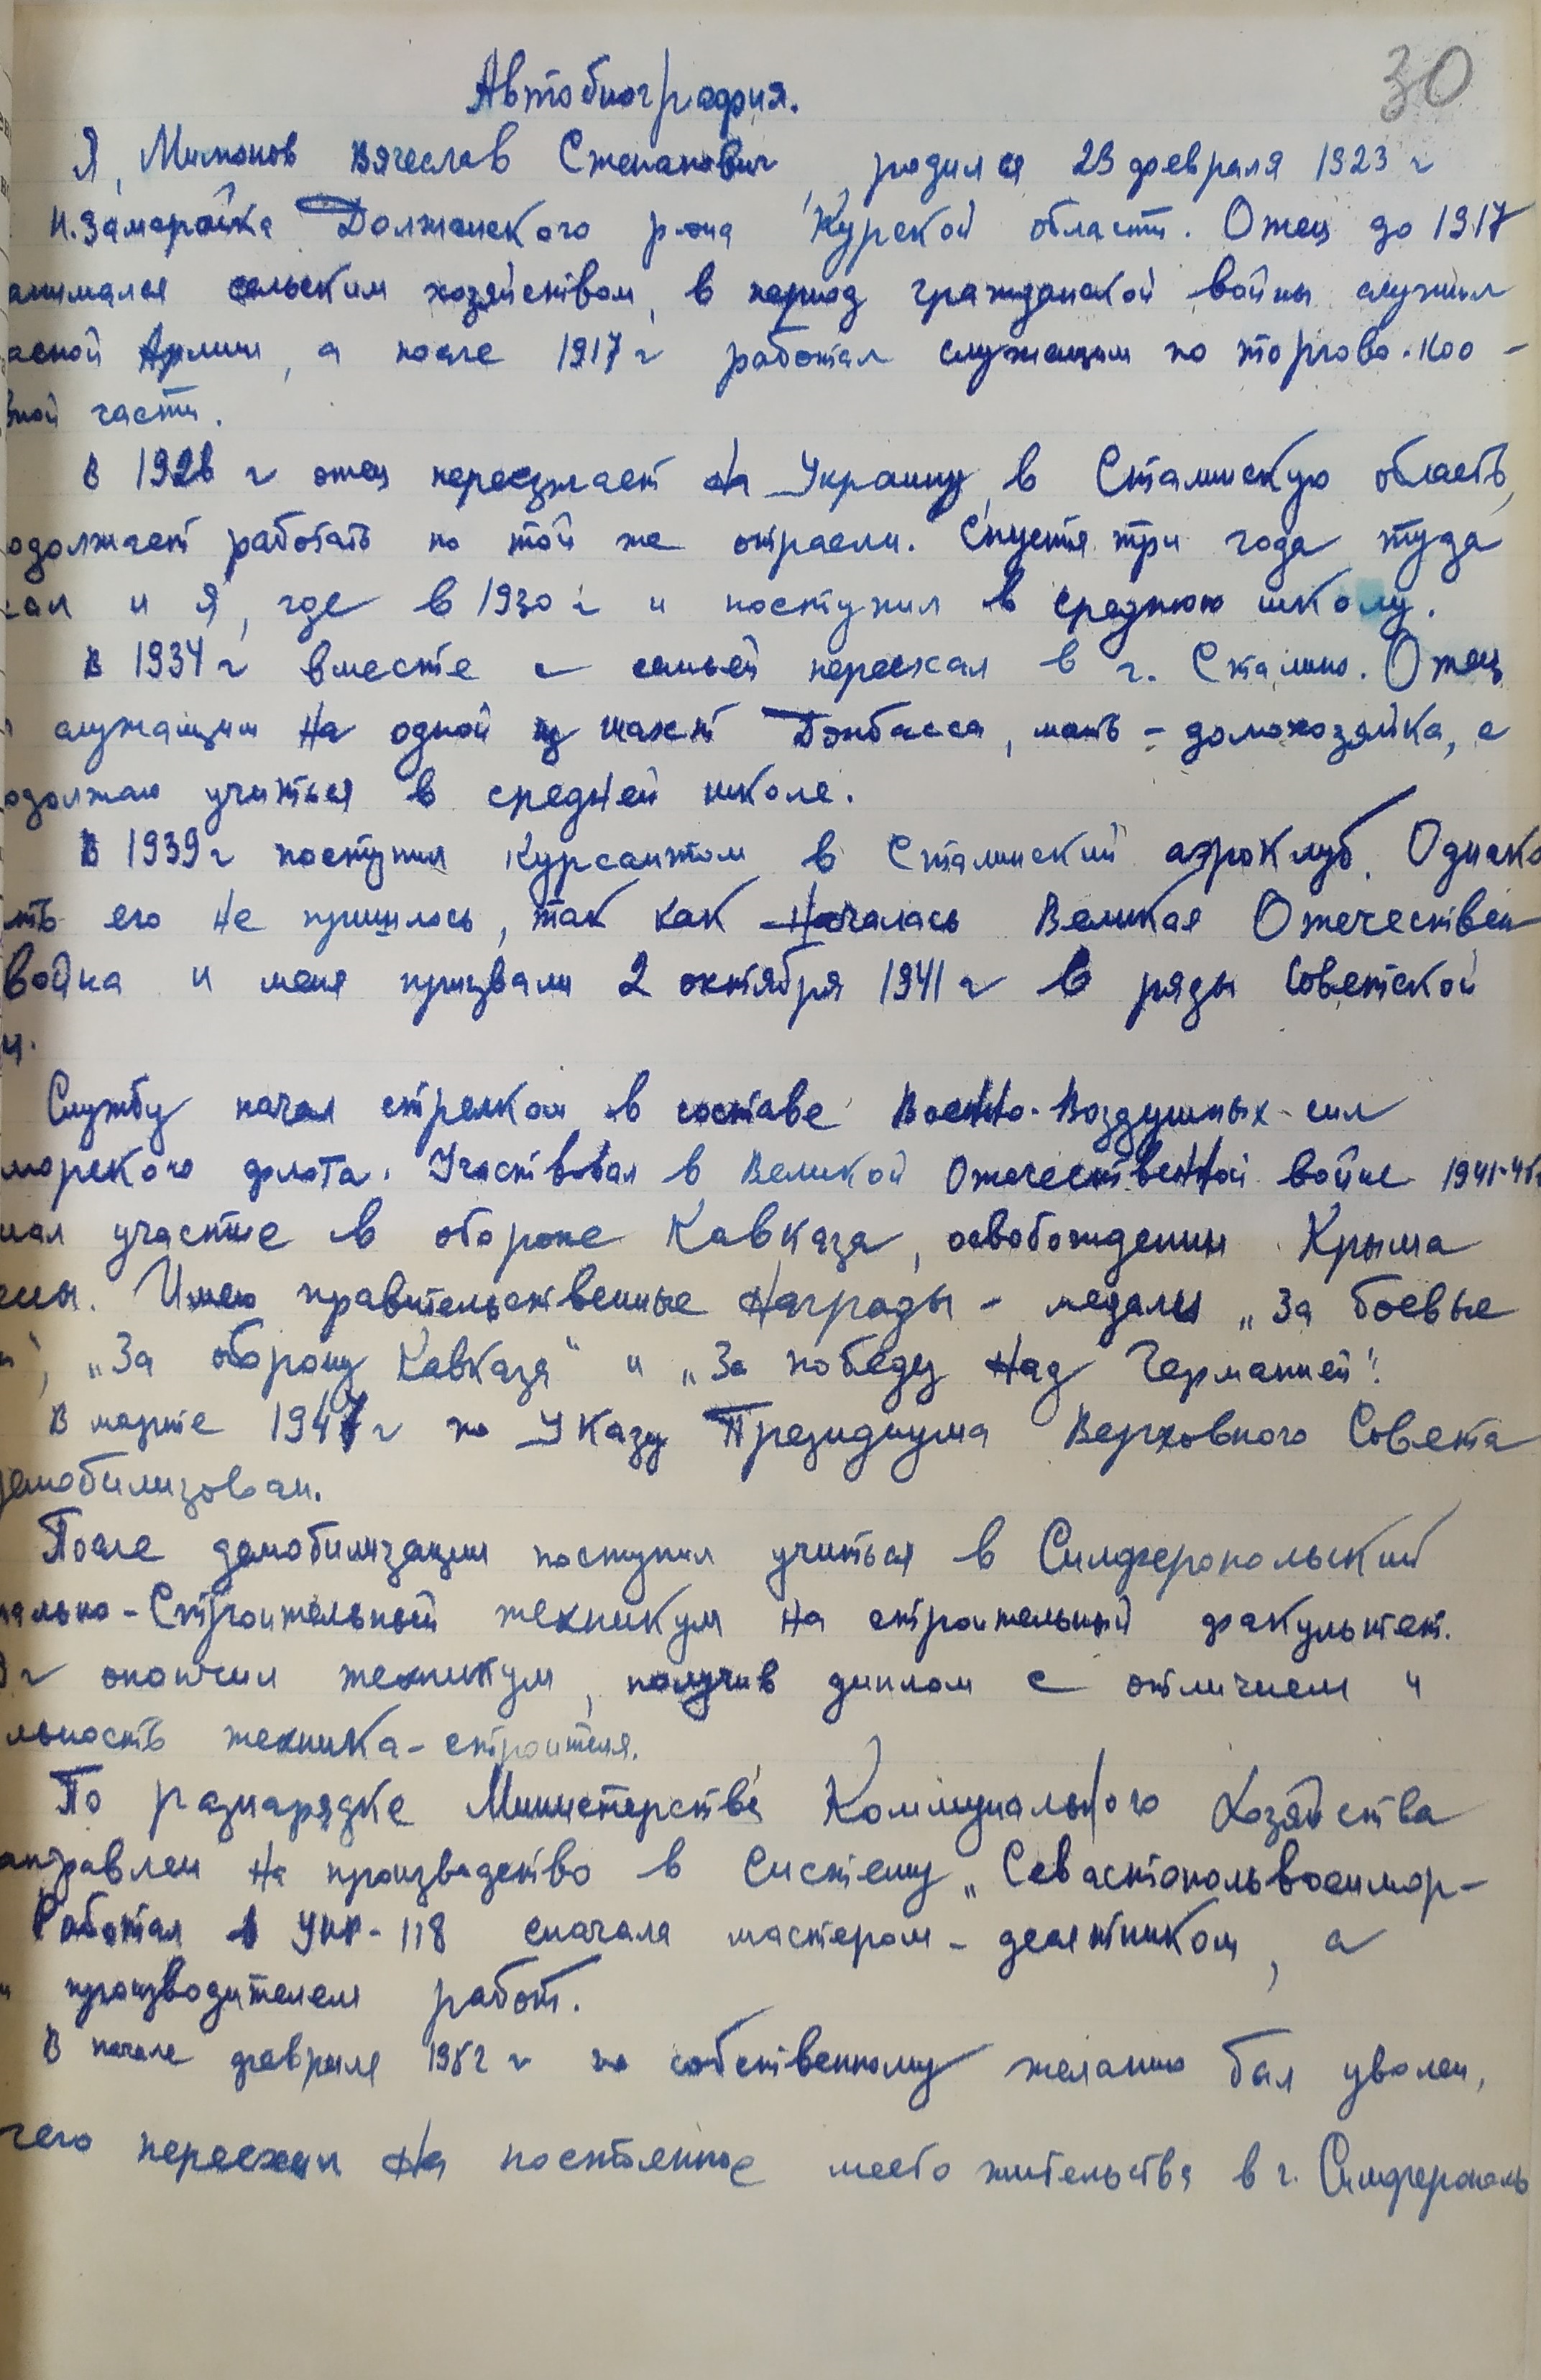 30
Автобиография.
Я, Миронов Вячеслав Степанович, родился 29 февраля 1923 г
Н.Замарайка Должанского р-она Курской области. Отец до 1917
анимался сельским хозяйством, в период гражданской войны служил
асной Армии, а после 1917 г работал служащим по торгово-коо-
вной части.
В 1928 г отец переезжает на Украину в Сталинскую область,
одолжает работать по той же отрасли. Спустя три года туда
хал и я, где в 1930 г и поступил в среднюю школу.
В 1934 г вместе с семьей переехал в г. Сталино. Отец
служащим на одной из шахт Донбасса, мать - домохозяйка, а
одолжаю учиться в средней школе.
В 1939 г поступил курсантом в Сталинский аэроклуб. Однако
ть его не пришлось, так как началась Великая Отечествен
война и меня призвали 2 октября 1941 г в ряды Советской
и.
Службу начал стрелком в составе Военно-Воздушных сил
морского флота. Участвовал в Великой Отечественной войне 1941-45г
мал участие в обороне Кавказа, освобождении Крыма
Имею правительственные награды - медали „За боевые
и", „За оборону Кавказа" и „За победу над Германией".
В марте 1947 г по Указу Президиума Верховного Совета
демобилизован.
После демобилизации поступил учиться в Симферопольский
ально-Строительный техникум на строительный факультет.
г окончил техникум, получив диплом с отличием и
льность техника-строителя.
По разнарядке Министерства Коммунального Хозяйства
аправлен на производство в систему „Севастопольвоенмор-
Работал в УНР-118 сначала мастером-десятником, а
производителем работ.
В начале февраля 1952 г по собственному желанию был уволен,
чего переехал на постоянное место жительства в г. Симферополь